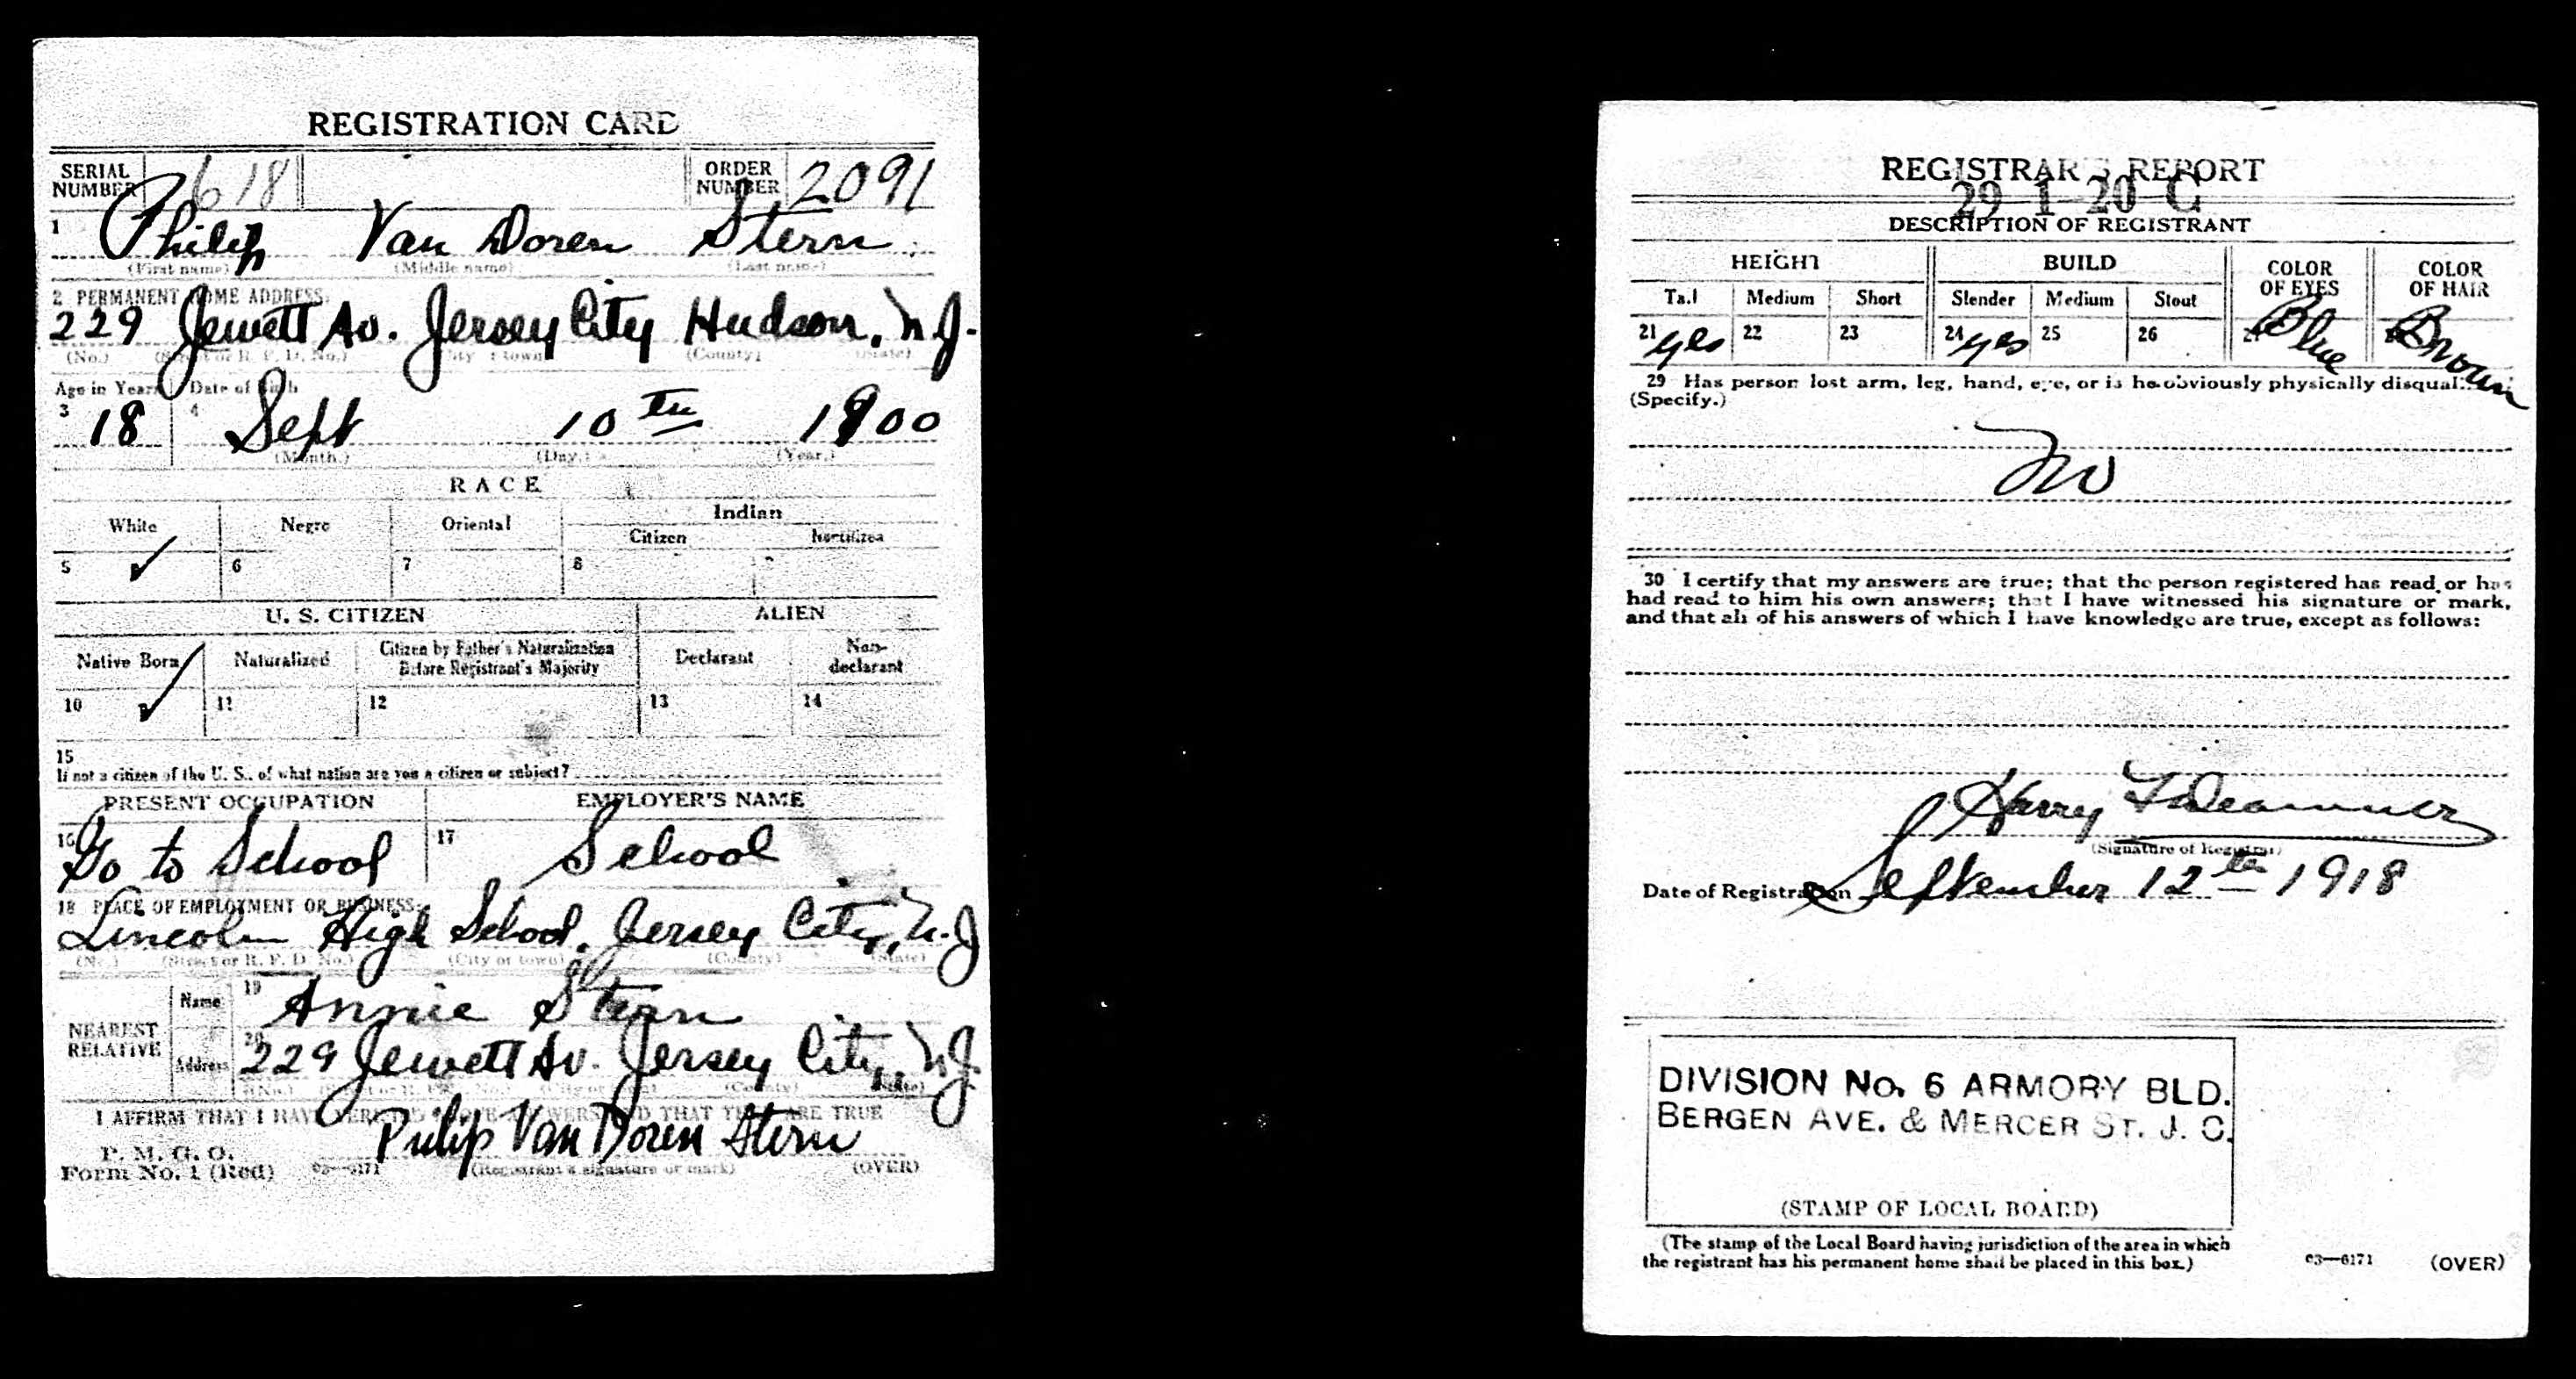 REGISTRATION CARD
SERIAL NUMBER 618 ORDER NUMBER 2091
1 Philip Van Doren Stern
(First name) (Middle name) (Last name)
2 PERMANENT HOME ADDRESS:
229 Jewett Av. Jersey City Hudson, N.J.
(No.) (Street or R. F. D. No.) (City or town) (County) (State)
Age in Years Date of Birth
3 18 4 Sept 10th 1900
(Month.) (Day.) (Year.)
RACE
White Negro Oriental Indian
Citizen Noncitizen
5 ✓ 6 7 8 9
U. S. CITIZEN ALIEN
Native Born Naturalized Citizen by Father's Naturalization Before Registrant's Majority Declarant Non-declarant
10 ✓ 11 12 13 14
15
If not a citizen of the U. S., of what nation are you a citizen or subject?
PRESENT OCCUPATION EMPLOYER'S NAME
16 Go to School 17 School
18 PLACE OF EMPLOYMENT OR BUSINESS:
Lincoln High School, Jersey City, N.J
(No.) (Street or R. F. D. No.) (City or town) (County) (State)
NEAREST RELATIVE Name 19 Annie Stern
Address 20 229 Jewett Av. Jersey City, N.J.
(No.) (Street or R. F. D. No.) (City or town) (County) (State)
I AFFIRM THAT I HAVE VERIFIED ABOVE ANSWERS AND THAT THEY ARE TRUE
P. M. G. O.
Form No. 1 (Red) 03—6171 Philip Van Doren Stern
(Registrant's signature or mark) (OVER)
REGISTRAR'S REPORT
29 1 20 C
DESCRIPTION OF REGISTRANT
HEIGHT BUILD COLOR OF EYES COLOR OF HAIR
Tall Medium Short Slender Medium Stout
21 yes 22 23 24 yes 25 26 27 Blue 28 Brown
29 Has person lost arm, leg, hand, eye, or is he obviously physically disqualified?
(Specify.)
No
30 I certify that my answers are true; that the person registered has read or has
had read to him his own answers; that I have witnessed his signature or mark,
and that all of his answers of which I have knowledge are true, except as follows:
Harry
(Signature of Registrar)
Date of Registration September 12th 1918
DIVISION No. 6 ARMORY BLD.
BERGEN AVE. & MERCER ST. J. C.
(STAMP OF LOCAL BOARD)
(The stamp of the Local Board having jurisdiction of the area in which
the registrant has his permanent home shall be placed in this box.)
03—6171 (OVER)